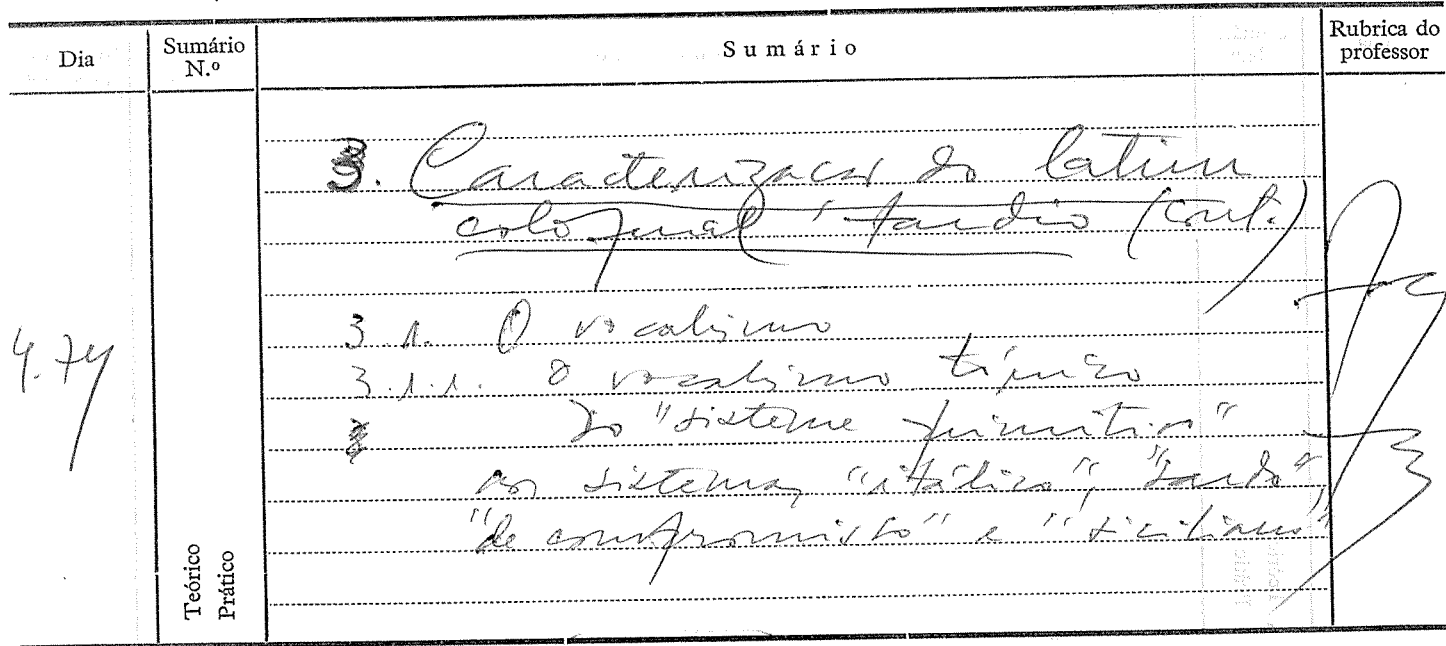 Dia
Sumário N.º
Sumário
Rubrica do professor
3. Caracterização do latim
coloquial tardio (cont.)
3.1. O vocalismo
4.74
3.1.1. O vocalismo tónico
Do "sistema primitivo"
aos sistemas "itálico", "sardo",
"de compromisso" e "siciliano"
Teórico
Prático